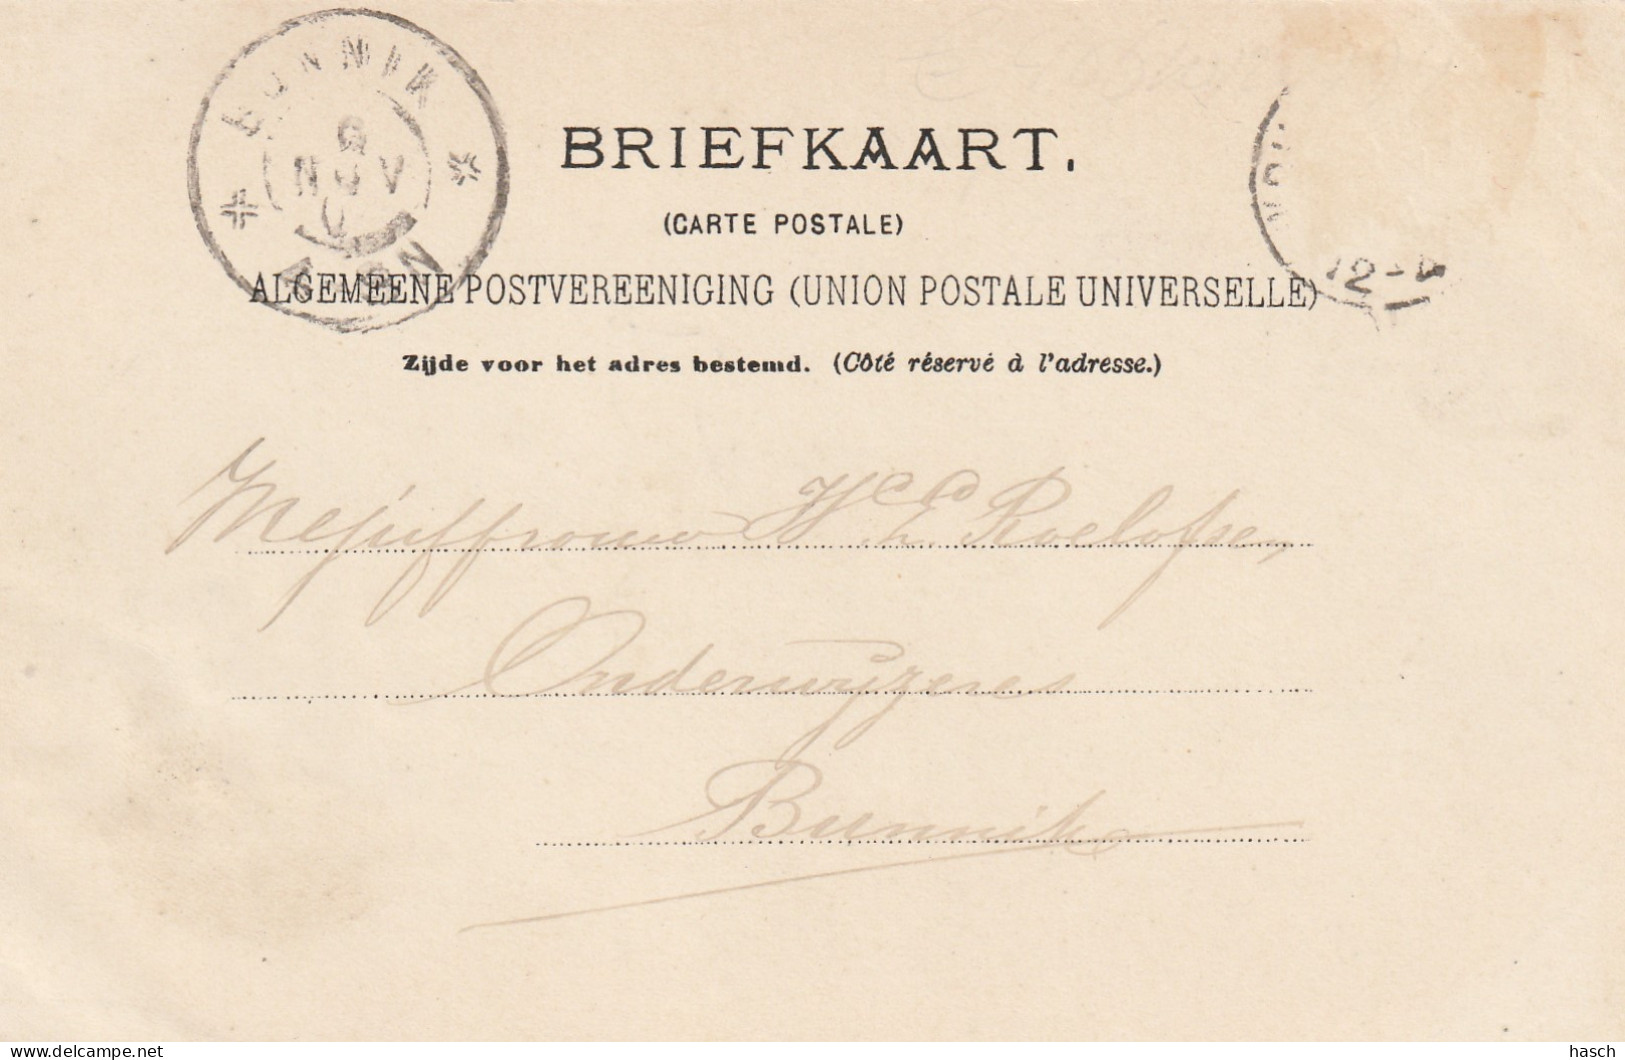 BUNNIK
6
NOV
BRIEFKAART.
(CARTE POSTALE)
ALGEMEENE POSTVEREENIGING (UNION POSTALE UNIVERSELLE)
Zijde voor het adres bestemd. (Côté réservé à l'adresse.)
Mejuffrouw Roelofsen,
Onderwijzeres
Bunnik
www.delcampe.net
hasch